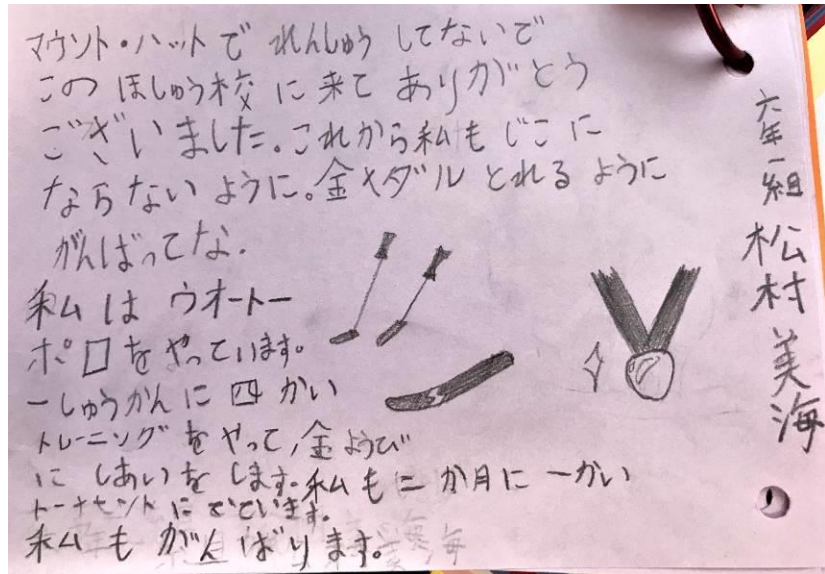 マウント・ハットで れんしゅう してないで
この ほしゅう校 に 来て ありがとう
ございました。これから私も じこ に
ならない ように。金メダル とれる ように
がんばってな.
私 は ウオートー
ポロ を やっています。
一しゅうかん に 四 かい
トレーニング を やって,金ようび
に しあい を します。私 も 二 か月 に 一かい
トーナメント に でています。
私 も がんばり ます。
六年一組 松村 美海